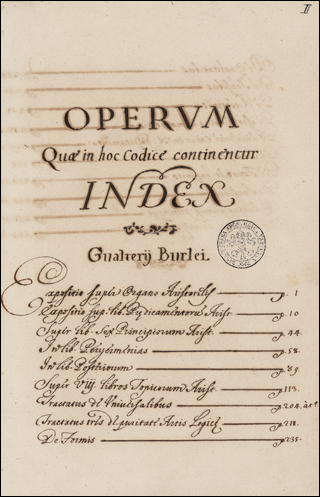 II
OPERVM
Quæ in hoc Codice continentur
INDEX
Gualterij Burlei.
Expositio super Organo Aristotelis p. 1
Expositio sup. lib. Prædicamentorū Arist. p. 10
Super lib. Sex Principiorum Arist. p. 44.
In lib. Periherménias p. 58.
In lib. Posteriorum p. 89.
Super VIII. libros Topicorum Arist. p. 113.
Tractatus de Vniuersalibus p. 204.
Tractatus tres de puritate Artis Logicæ p. 211.
De Formis p. 235.